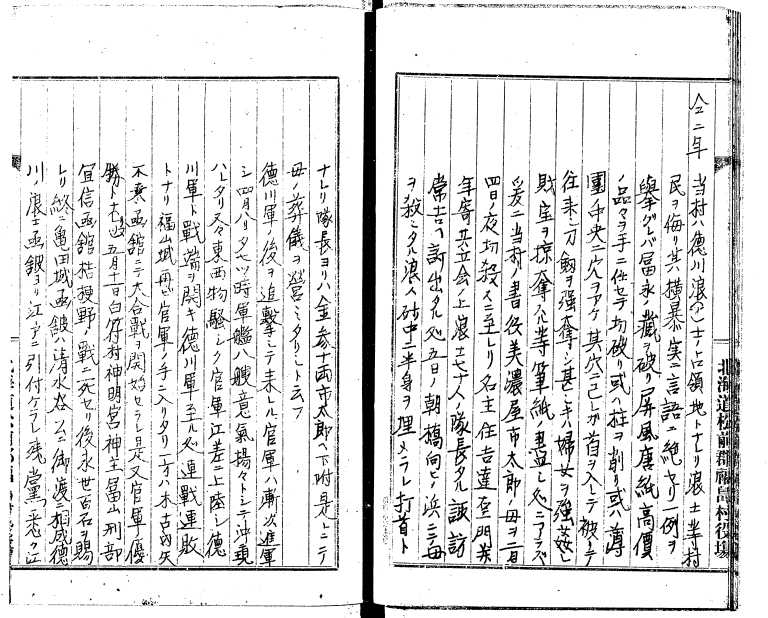 仝二年 当村ハ德川浪人士ノ占領地トナレリ浪士半村
民ヲ侮リ其横暴実ニ言語ニ絶セリ一例ヲ
擧グレバ冨永ノ藏ヲ破リ屏風唐紙高價
ノ品々ヲ手ニ仕セテ切破リ或ハ柱ヲ削リ或ハ蒲
團ノ中央ニ穴ヲアケ其穴ニ己レガ首ヲ入レテ被リテ
往来シ刀劔ヲ強奪シ甚シキハ婦女ヲ強姦シ
財宝ヲ掠奪スル半等筆紙ノ盡シ処ニアラズ
爰ニ当村ノ書役美濃屋市太郎ノ母ヲ二日
四日ノ夜切殺スニ至レリ名主住吉達右ヱ門并
年寄共立会ノ上浪士七十人ノ隊長タル諏訪
常吉ヘ訴出タル処五日ノ朝橋向ヒノ浜ニテ母
ヲ殺シタル浪人砂中ニ半身ヲ埋メラレ打首ト
北海道松前郡福島村役場
ナレリ隊長ヨリハ金参十両市太郎ヘ下附是レニテ
母ノ葬儀ヲ營ミタリシト云フ
德川軍ノ後ヲ追擊シテ来レル官軍ハ漸次進軍
シ四月八日夕七ツ時軍艦八艘意氣揚々トシテ沖ニ現
ハレタリ又々東西物騒シク官軍江差ニ上陸シ德
川軍ト戰端ヲ開キ德川軍至ル処連戰連敗
トナリ福山城再ビ官軍ノ手ニ入リタリ一方ハ木古内矢
不来函舘ニテ大合戰ヲ開始セラレ是又官軍ノ優
勝トナル五月十一日白符村神明宮神主冨山刑部
宜信函舘桔梗野ノ戰ニ死セリ後永世百石ヲ賜
レリ終ニ亀田城函舘ハ清水谷公ニ御渡ニ相成德
川ノ浪士函舘ヨリ江戸ニ引付ケラレ残黨悉ク江